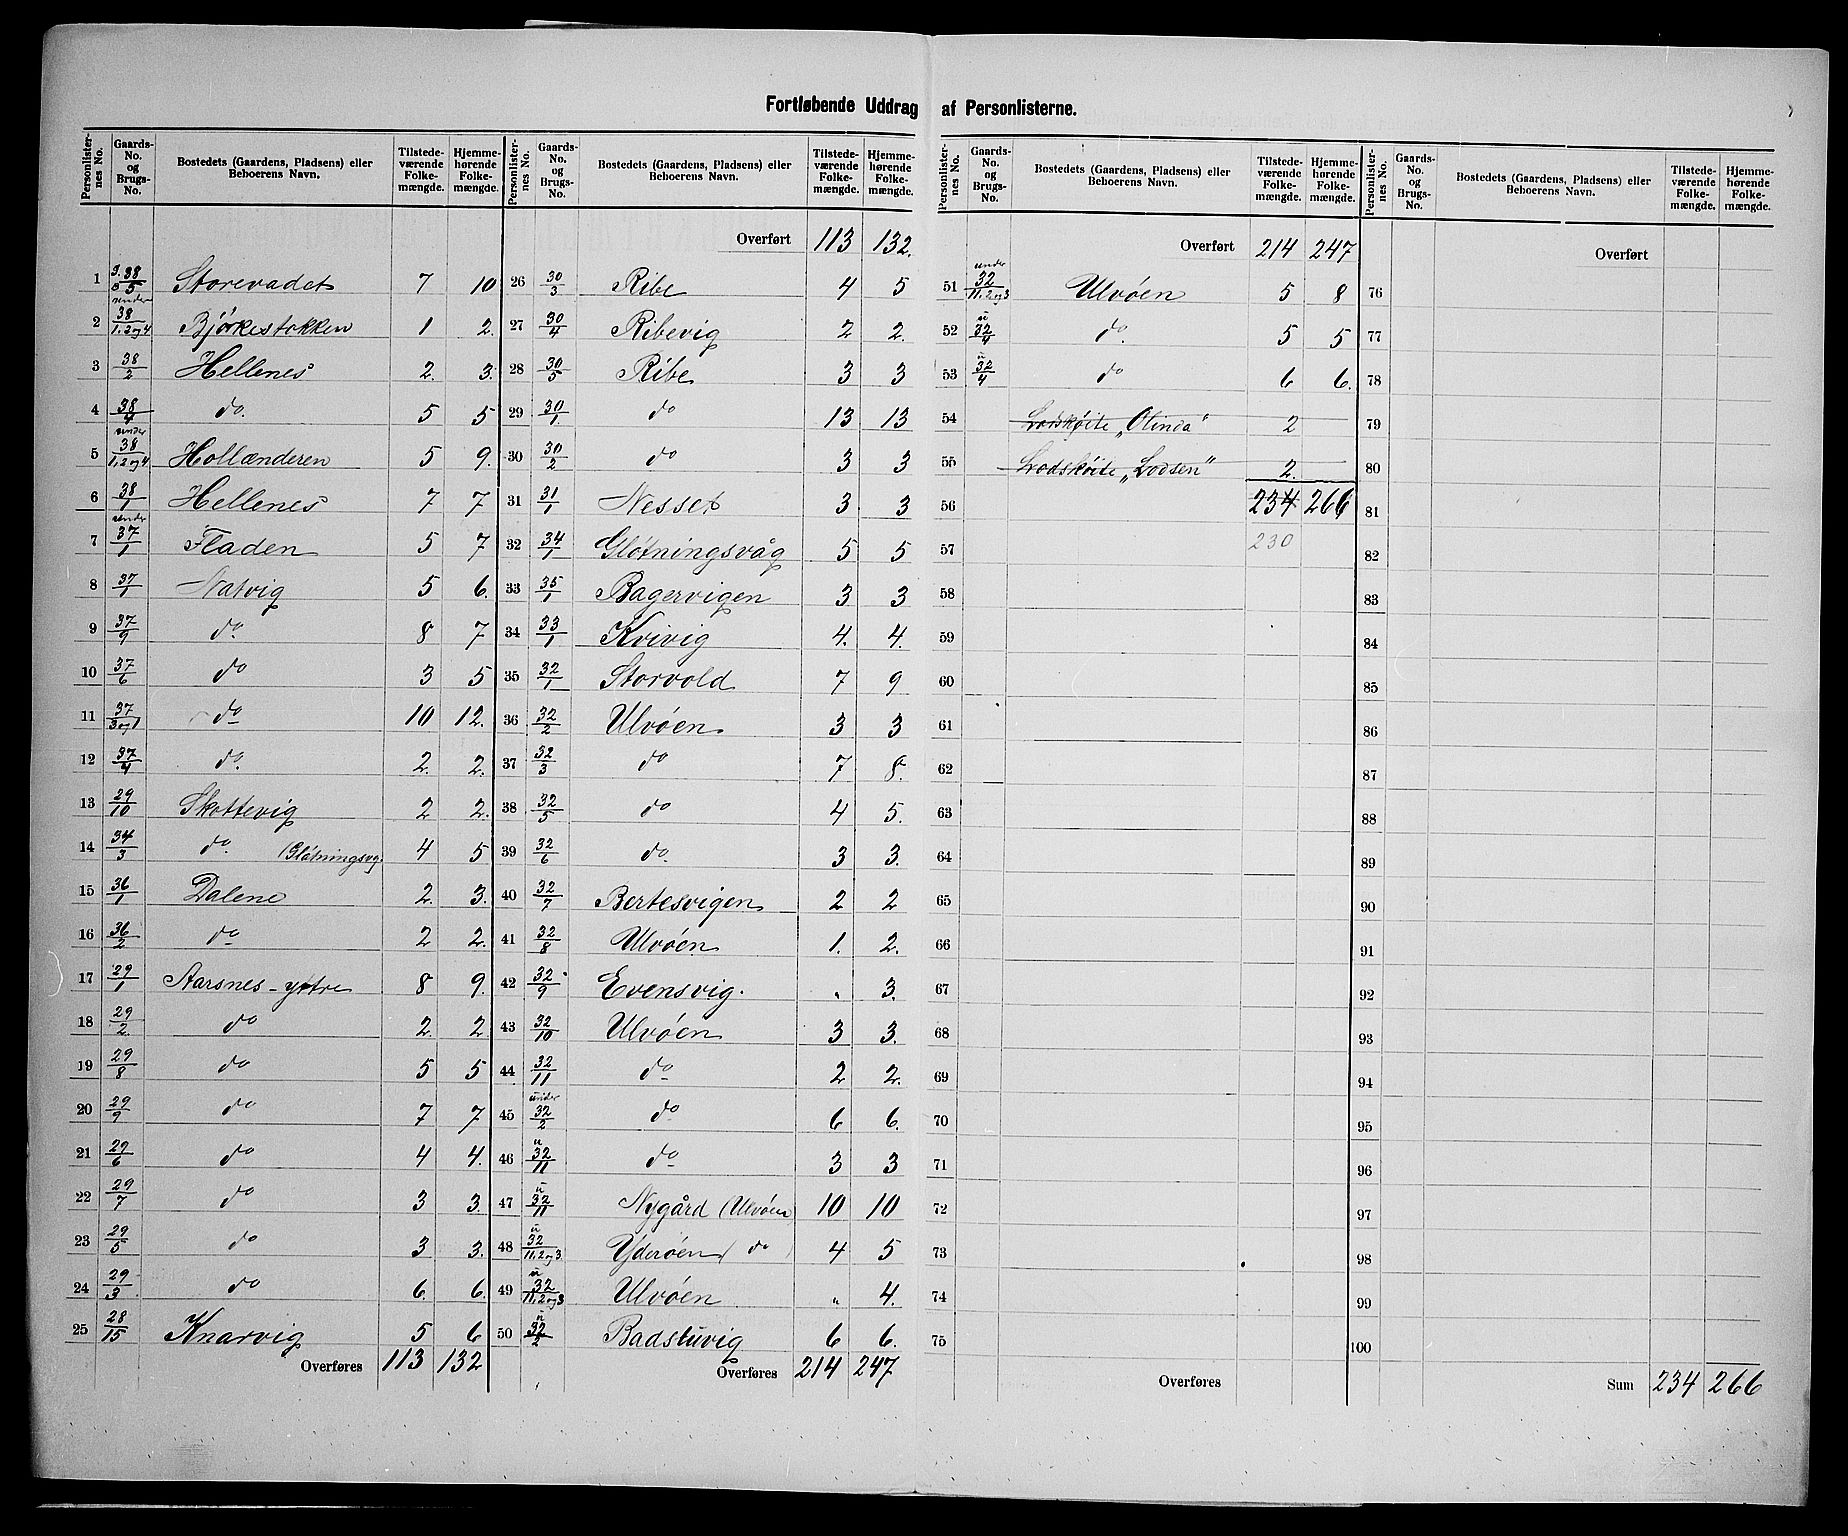 Fortløbende Uddrag af Personlisterne.
Personlisternes No. | Gaards-No. og Brugs-No. | Bostedets (Gaardens, Pladsens) eller Beboerens Navn. | Tilstedeværende Folkemængde. | Hjemmehørende Folkemængde.
1 | 38/5 | Storevadet | 7 | 10
2 | under 38/1.2og4 | Bjørkestokken | 1 | 2.
3 | 38/2 | Hellenes | 2. | 3.
4 | 38/4 | do. | 5 | 5
5 | under 38/1.2og4 | Hollænderen | 5 | 9.
6 | 38/1 | Hellenes | 7 | 7
7 | under 37/1 | Fladen | 5 | 7
8 | 37/1 | Natvig | 5 | 6.
9 | 37/9 | do. | 8 | 7
10 | 37/6 | do | 3 | 5
11 | 37/3og1 | do | 10 | 12.
12 | 37/4 | do. | 2. | 2.
13 | 29/10 | Skottevig | 2 | 2.
14 | 34/3 | do. (Gløtningsvg. | 4 | 5
15 | 36/1 | Dalene | 2. | 3.
16 | 36/2 | do | 2 | 2.
17 | 29/1 | Aarsnes-yttre | 8 | 9.
18 | 29/2. | do | 2. | 2.
19 | 29/8 | do | 5 | 5
20 | 29/9 | do | 7 | 7
21 | 29/6 | do | 4 | 4.
22 | 29/7 | do | 3 | 3.
23 | 29/5 | do | 3 | 3.
24 | 29/3 | do | 6. | 6.
25 | 28/15 | Knarvig | 5 | 6
Overføres 113 132
Personlisternes No. | Gaards-No. og Brugs-No. | Bostedets (Gaardens, Pladsens) eller Beboerens Navn. | Tilstedeværende Folkemængde. | Hjemmehørende Folkemængde.
Overført 113 132.
26 | 30/3 | Ribe | 4 | 5
27 | 30/4 | Ribevig | 2 | 2.
28 | 30/5 | Ribe | 3 | 3
29 | 30/1. | do | 13 | 13
30 | 30/2 | do | 3 | 3
31 | 31/1 | Nesset | 3. | 3
32 | 34/1 | Gløtningsvåg | 5 | 5
33 | 35/1 | Bagervigen | 3 | 3
34 | 33/1 | Kvivig | 4. | 4.
35 | 32/1 | Storvold | 7 | 9
36 | 32/2 | Ulvøen | 3 | 3
37 | 32/3 | do | 7 | 8.
38 | 32/5 | do | 4 | 5.
39 | 32/6 | do. | 3 | 3.
40 | 32/7 | Bertesvigen | 2 | 2
41 | 32/8 | Ulvøen | 1. | 2.
42 | 32/9 | Evensvig. | " | 3.
43 | 32/10 | Ulvøen | 3 | 3.
44 | 32/11 | do | 2 | 2.
45 | under 32/2 | do | 6 | 6.
46 | u 32/11 | do | 3 | 3
47 | u 32/11 | Nygård (Ulvøen | 10 | 10
48 | u 32/11,2og3. | Yderøen (do) | 4 | 5
49 | u 32/11,2og3 | Ulvøen | " | 4.
50 | u 32/2 | Badstuvig | 6 | 6.
Overføres 214 247
Personlisternes No. | Gaards-No. og Brugs-No. | Bostedets (Gaardens, Pladsens) eller Beboerens Navn. | Tilstedeværende Folkemængde. | Hjemmehørende Folkemængde.
Overført 214 247
51 | under 32/11,2og3 | Ulvøen | 5 | 8
52 | u 32/4 | do. | 5 | 5
53 | u 32/4 | do | 6 | 6.
54 | Lodskøite "Olinea" | 2
55 | Lodskøite "Lodsen" | 2.
56 | 234 | 266
57 | 230
58
59
60
61
62
63
64
65
66
67
68
69
70
71
72
73
74
75
Overføres
Personlisternes No. | Gaards-No. og Brugs-No. | Bostedets (Gaardens, Pladsens) eller Beboerens Navn. | Tilstedeværende Folkemængde. | Hjemmehørende Folkemængde.
Overført
76
77
78
79
80
81
82
83
84
85
86
87
88
89
90
91
92
93
94
95
96
97
98
99
100
Sum 234 266